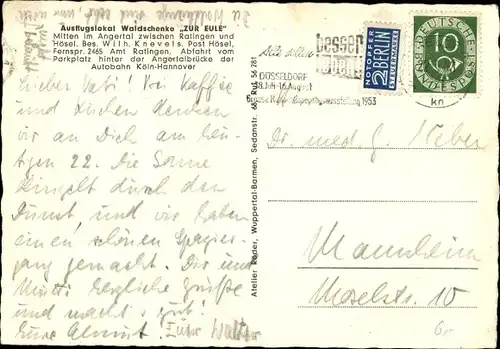 Ausflugslokal Waldschenke „ZUR EULE"
Mitten im Angertal zwischen Ratingen und
Hösel. Bes. Wilh. Knevels. Post Hösel,
Fernspr. 2465 Amt Ratingen. Abfahrt vom
Parkplatz hinter der Angertalbrücke der
Autobahn Köln-Hannover
Lieber Vati! Bei Kaffee
und Kuchen denken
wir an Dich am heu-
tigen 22. Die Sonne
klingelt durch den
Dunst, und wir haben
einen schönen Spazier-
gang gemacht. Dir und
Mutti herzliche Grüße
und macht's gut!
Eure Almut. Euer Walter
Atelier Röder, Wuppertal-Barmen, Sedanstr. 68, Ruf 56 781
Alle sollen
besser
leben
DÜSSELDORF
1953
NOTOPFER
2 BERLIN
STEUERMARKE
DEUTSCHE
10
BUNDESPOST
Dr. med. G. Weber
Mannheim
Moselstr. 10